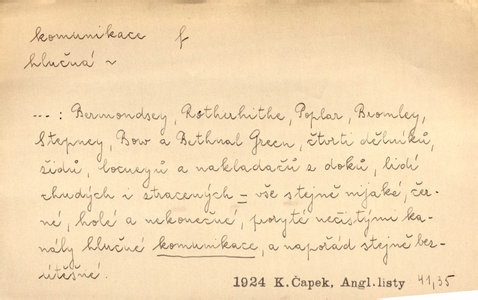 komunikace f
hlučná ~
--- : Bermondsey, Rotherhithe, Poplar, Bromley,
Stepney, Bow a Bethnal Green, čtvrti dělníků,
židů, locneyů a nakladačů z doků, lidí
chudých i ztracených – vše stejně nijaké, čer-
né, holé a nekonečné, poryté nečistými ka-
nály hlučné komunikace, a napořád stejně bez-
útěšné.
1924 K. Čapek, Angl. listy 41,35